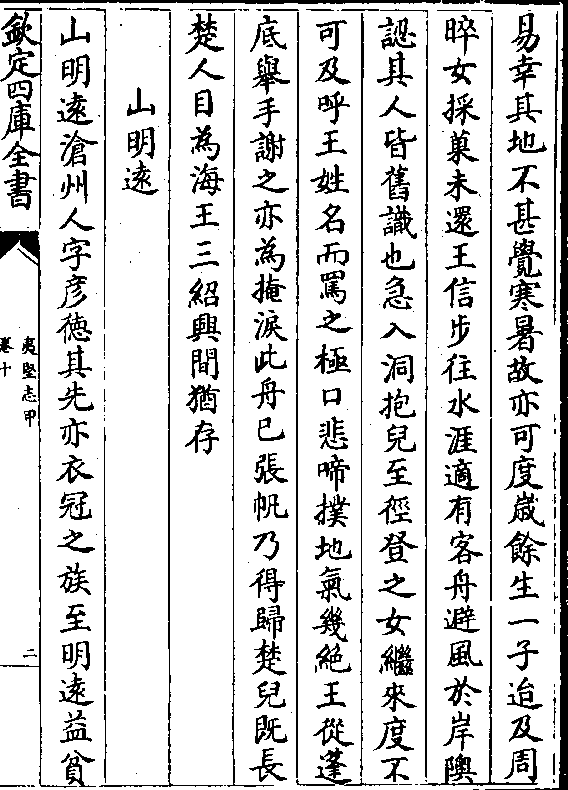 易幸其地不甚覺寒暑故亦可度歲餘生一子迨及周
晬女採菓未還王信步往水涯適有客舟避風於岸隩
認其人皆舊識也急入洞抱兒至徑登之女繼來度不
可及呼王姓名而罵之極口悲啼撲地氣幾絶王從篷
底舉手謝之亦為掩淚此舟已張帆乃得歸楚兒既長
楚人目為海王三紹興間猶存
山明逺
山明逺滄州人字彦徳其先亦衣冠之族至明逺益貧
欽定四庫全書
夷堅志甲
卷十
二